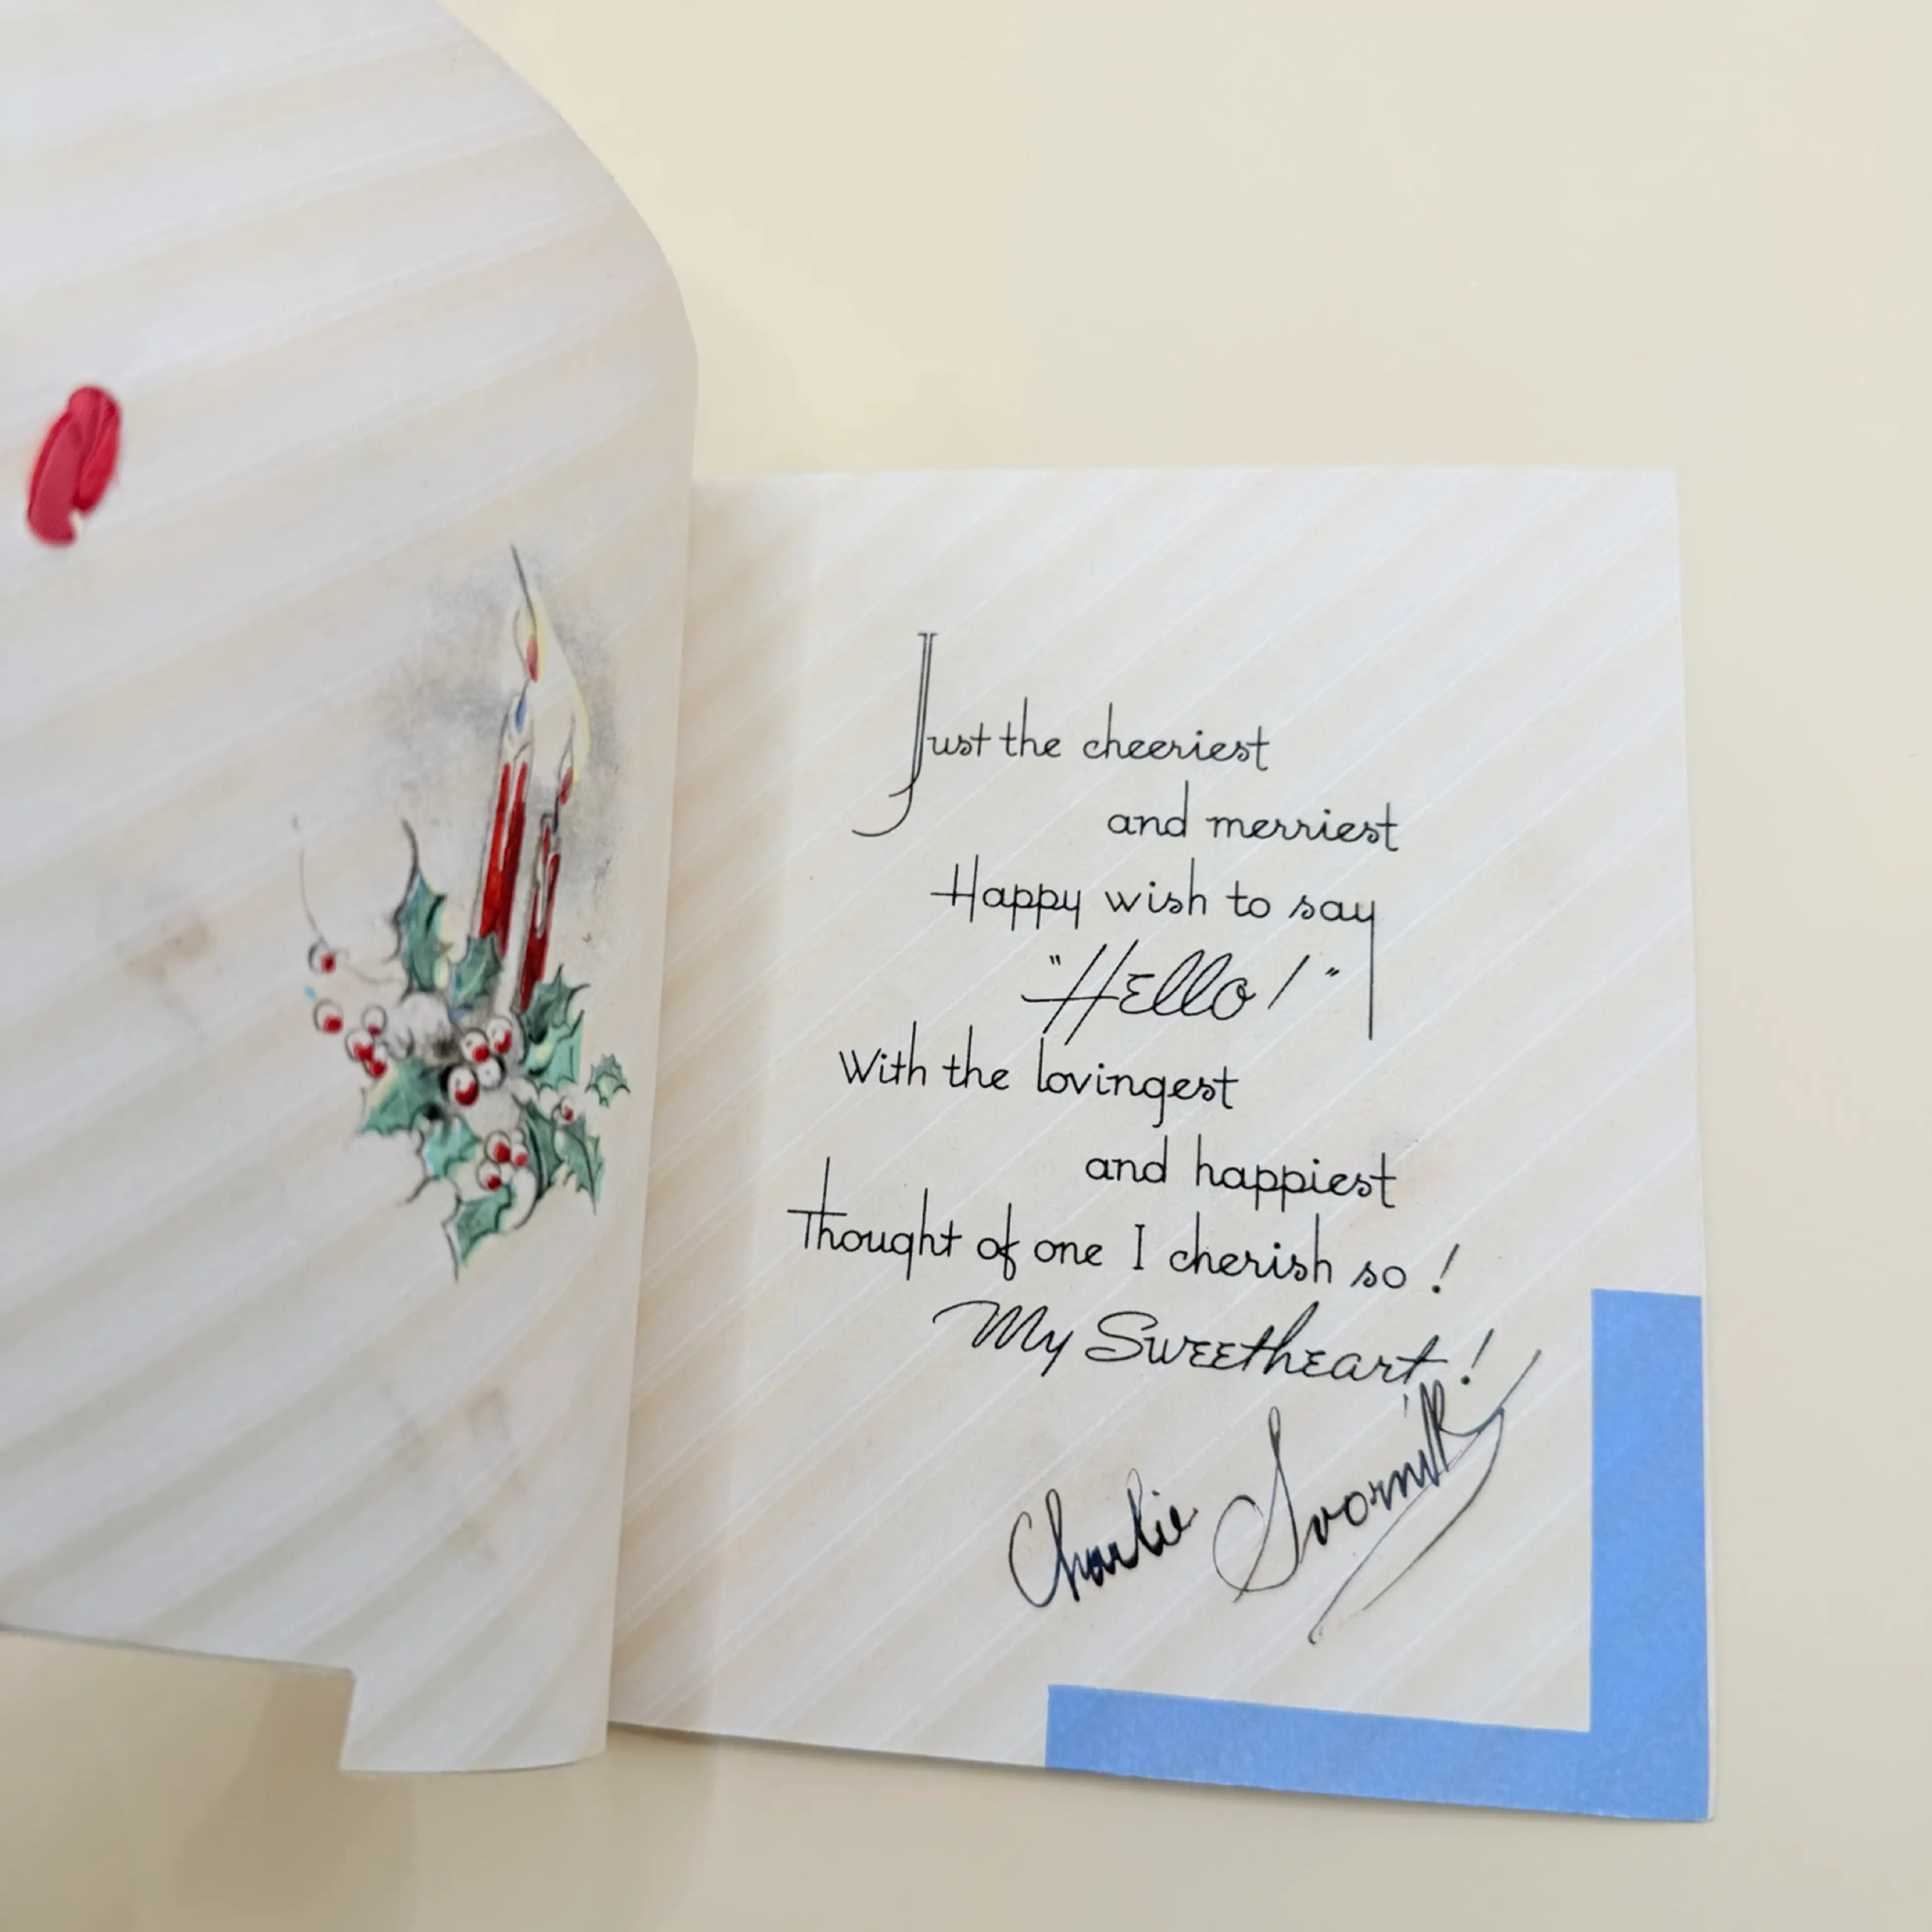 Just the cheeriest
and merriest
Happy wish to say
"Hello!"
With the lovingest
and happiest
Thought of one I cherish so!
My Sweetheart!
Charlie